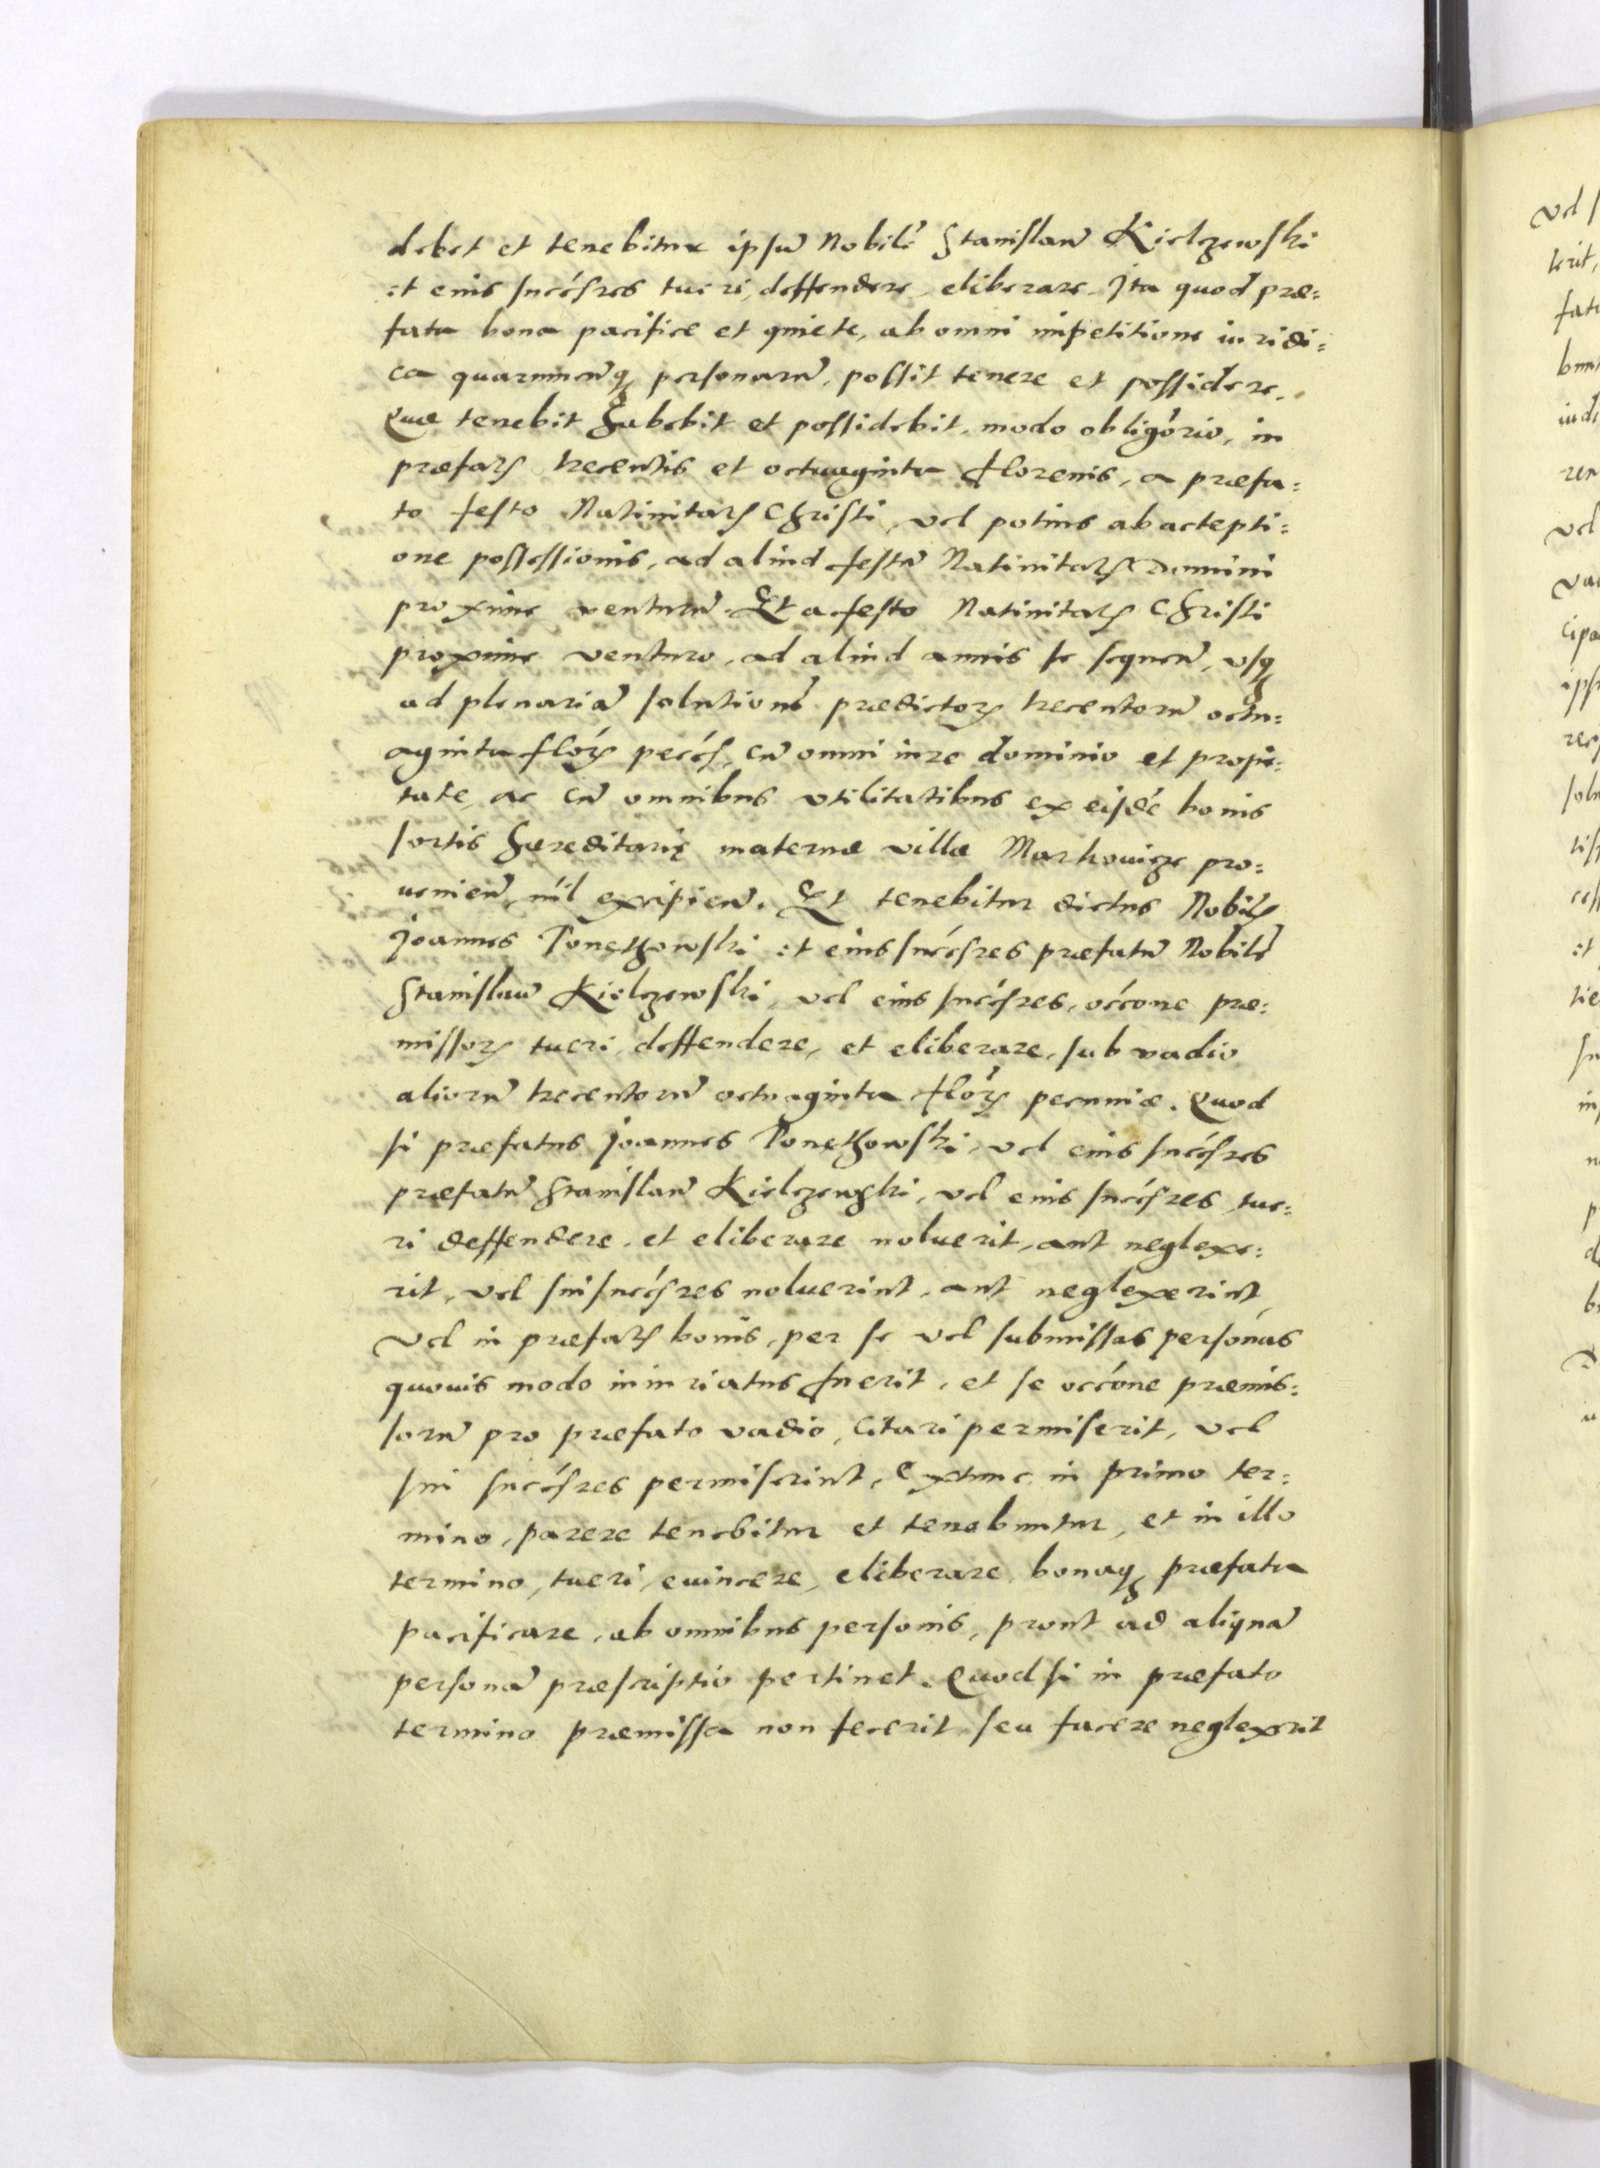 debet et tenebitur ipsũ Nobilẽ Stanislaũ Kielczewski
et eius succ̃res tueri, deffendere, eliberare. Ita quod præ=
fata bona pacifice et quiete, ab omni impetitione iuridi=
ca quarumcũq; personarũ, possit tenere et possidere.
Quæ tenebit habebit et possidebit, modo obligõrio, in
præfatꝭ trecentis et octuaginta florenis, a præfa=
to festo Natiuitatꝭ Christi, vel potius ab accepti=
one possessionis, ad aliud festũ Natiuitatꝭ Domini
proxime venturũ. Et a festo Natiuitatꝭ Christi
proxime venturo, ad aliud annis se sequeñ, vsq;
ad plenariã solutionẽ prædictorꝝ trecentorũ octu=
aginta florꝝ pecc̃s, cũ omni iure dominio et propie=
tate, ac cũ omnibus vtilitatibus ex eisdẽ bonis
sortis hæreditarię maternæ villæ Markouicze pro=
uenieñ, nĩl excipieñ. Et tenebitur dictus Nobilꝭ
Joannes Ponęthowski et eius succ̃res præfatũ Nobilẽ
Stanislaũ Kielczewski, vel eius succ̃res, occõne præ=
missorꝝ tueri, deffendere, et eliberare, sub vadio
aliorũ trecentorũ octuaginta florꝝ pecuniæ. Quod
si præfatus Joannes Ponęthowski, vel eius succ̃res
præfatũ Stanislaũ Kielczewski, vel eius succ̃res, tue=
ri deffendere, et eliberare noluerit, aut neglexe=
rit, vel sui succ̃res noluerint, aut neglexerint,
Vel in præfatꝭ bonis, per se vel submissas personas
quouis modo iniuriatus fuerit, et se occõne præmis=
sorũ pro præfato vadio, citari permiserit, vel
sui succ̃res permiserint, extunc in primo ter=
mino, parere tenebitur et tenebuntur, et in illo
termino, tueri, euincere, eliberare, bonaq; præfata
pacificare, ab omnibus personis, prout ad aliquã
personã præscriptio pertinet. Quod si in præfato
termino præmissa non fecerit, seu facere neglexerit